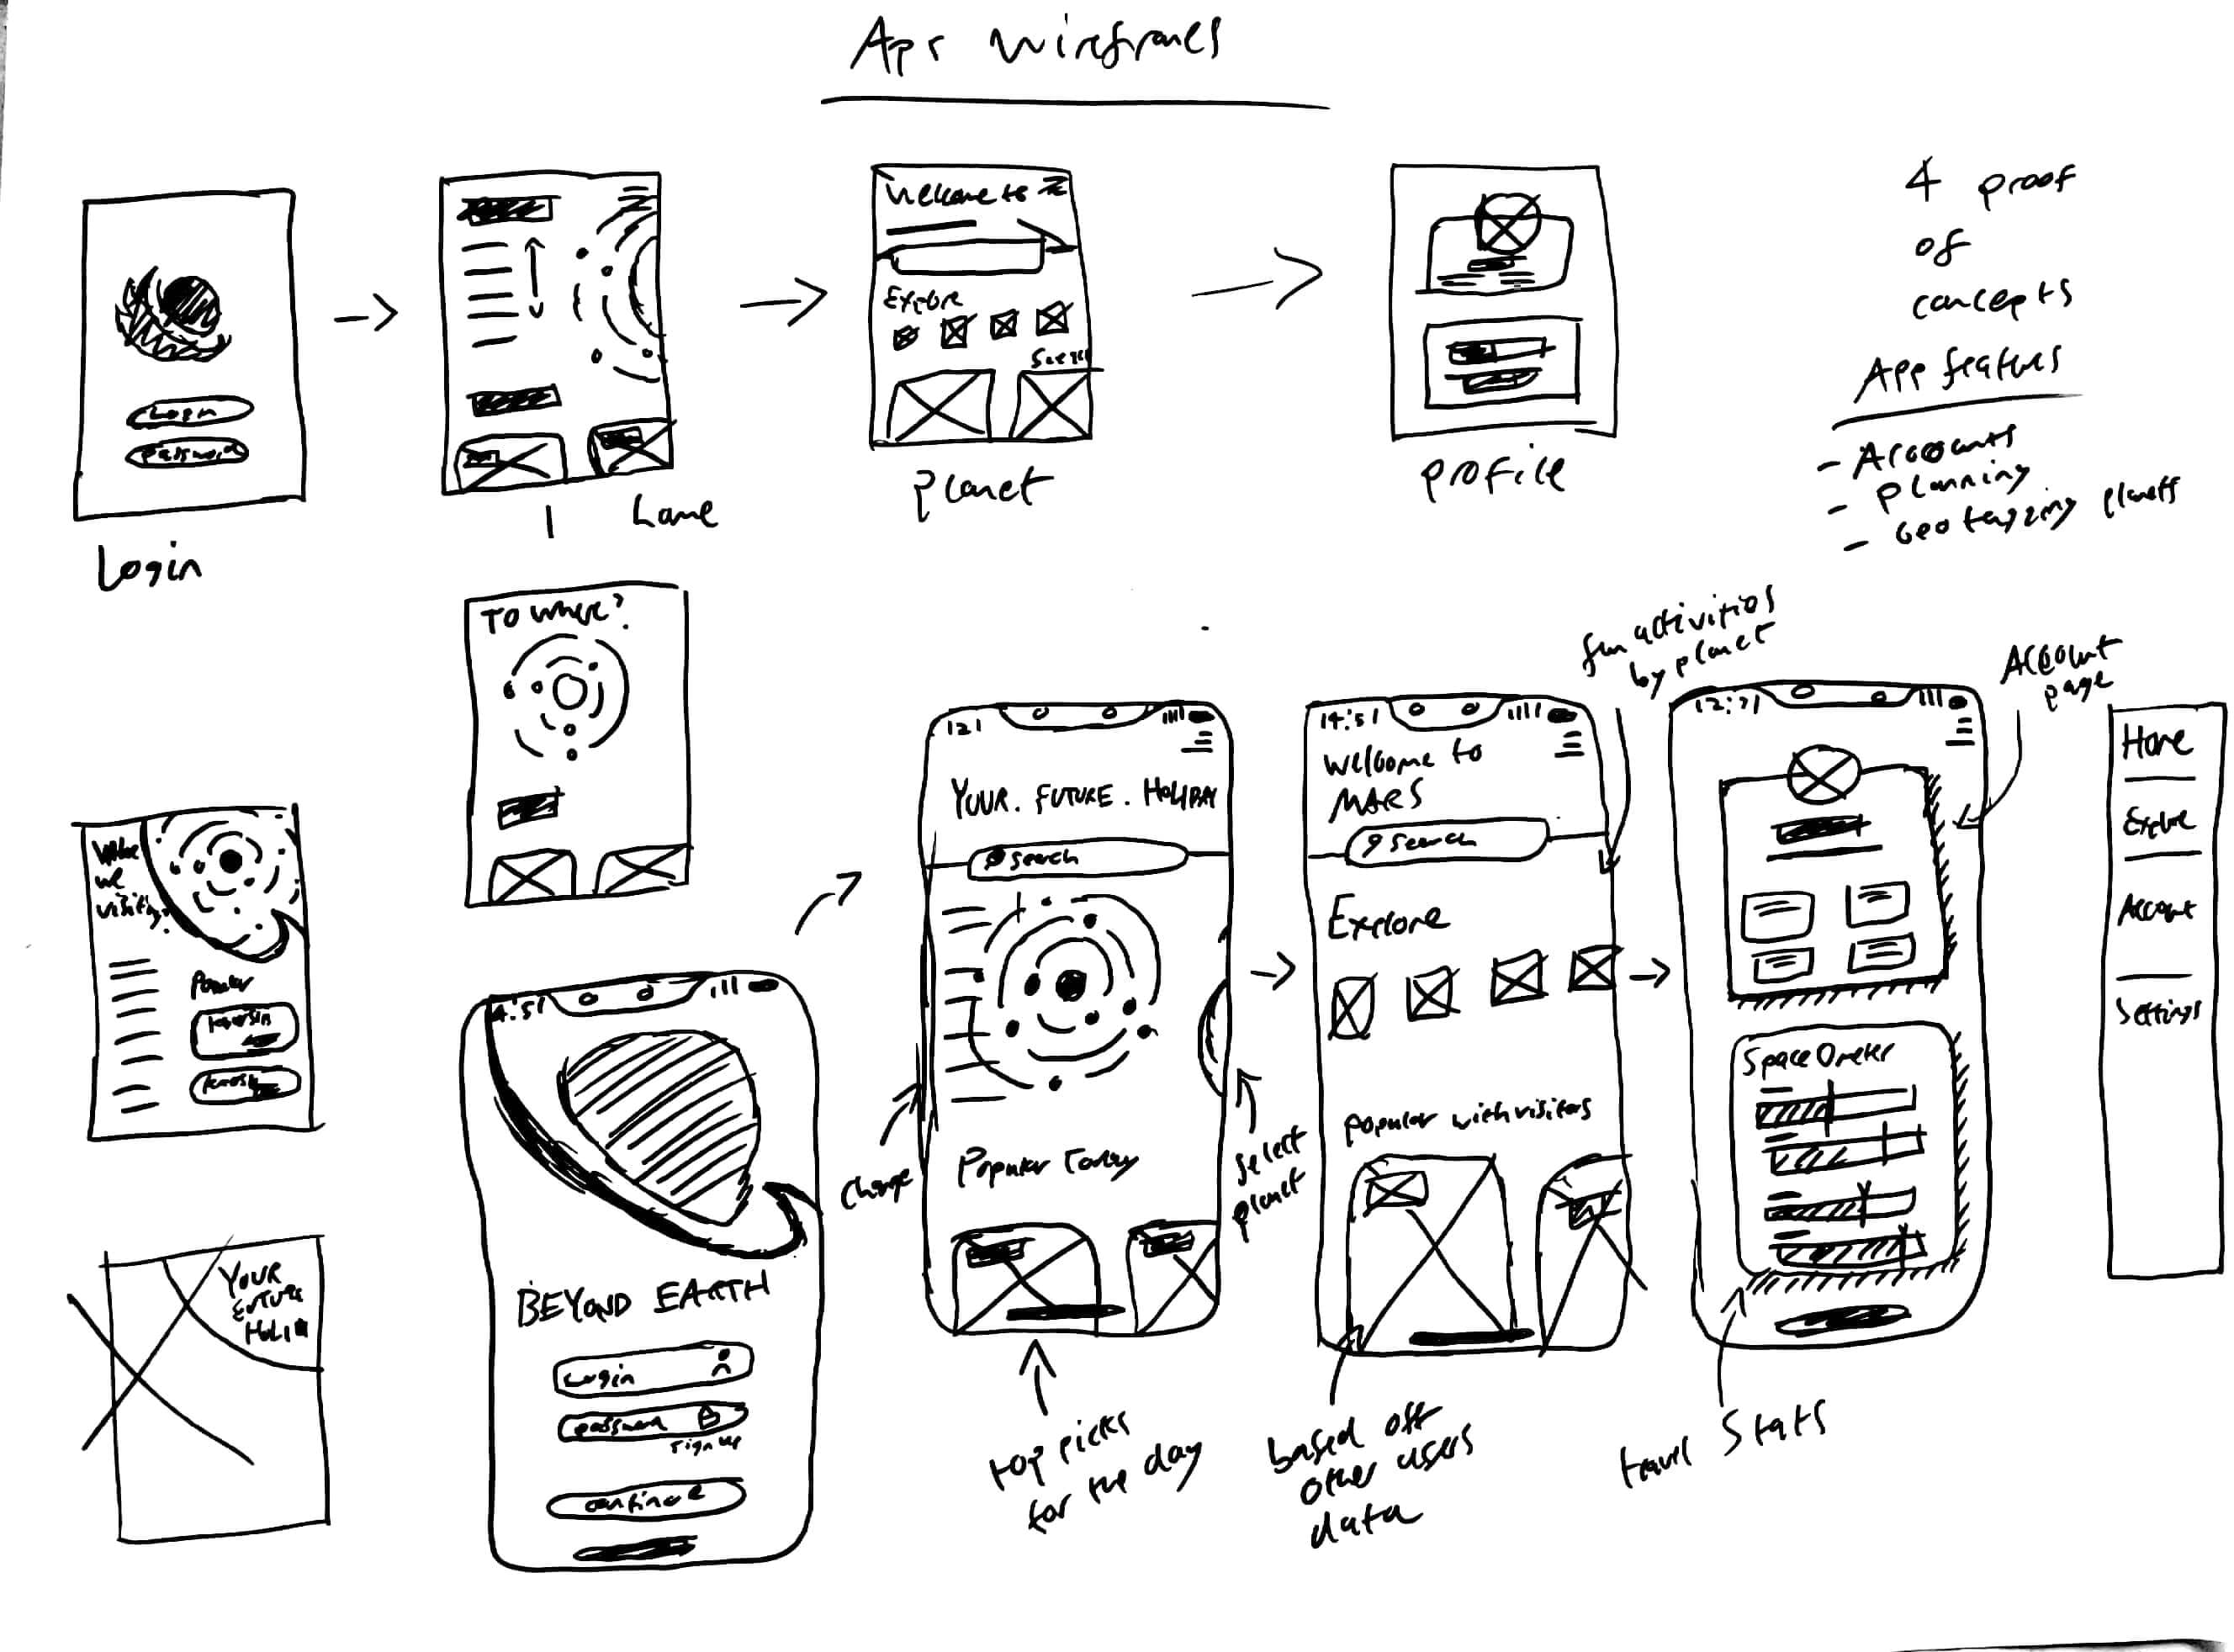 App Wireframes
Login
Password
Login
Home
Welcome to
Explore
Planet
Profile
4 proof
of
concepts
App features
- Accounts
- Planning
- Geotagging planets
To where?
we
visiting?
Popular
YOUR
FUTURE
4:51
BEYOND EARTH
Login
password
sign up
continue
121
YOUR. FUTURE. HOLIDAY
Search
Popular Today
Change
Select
planet
top picks
for the day
14:51
Welcome to
MARS
Search
Explore
Popular with visitors
fun activities
by planet
based off
other users
data
Account
page
SpaceOmeter
travel stats
Home
Explore
Account
Settings